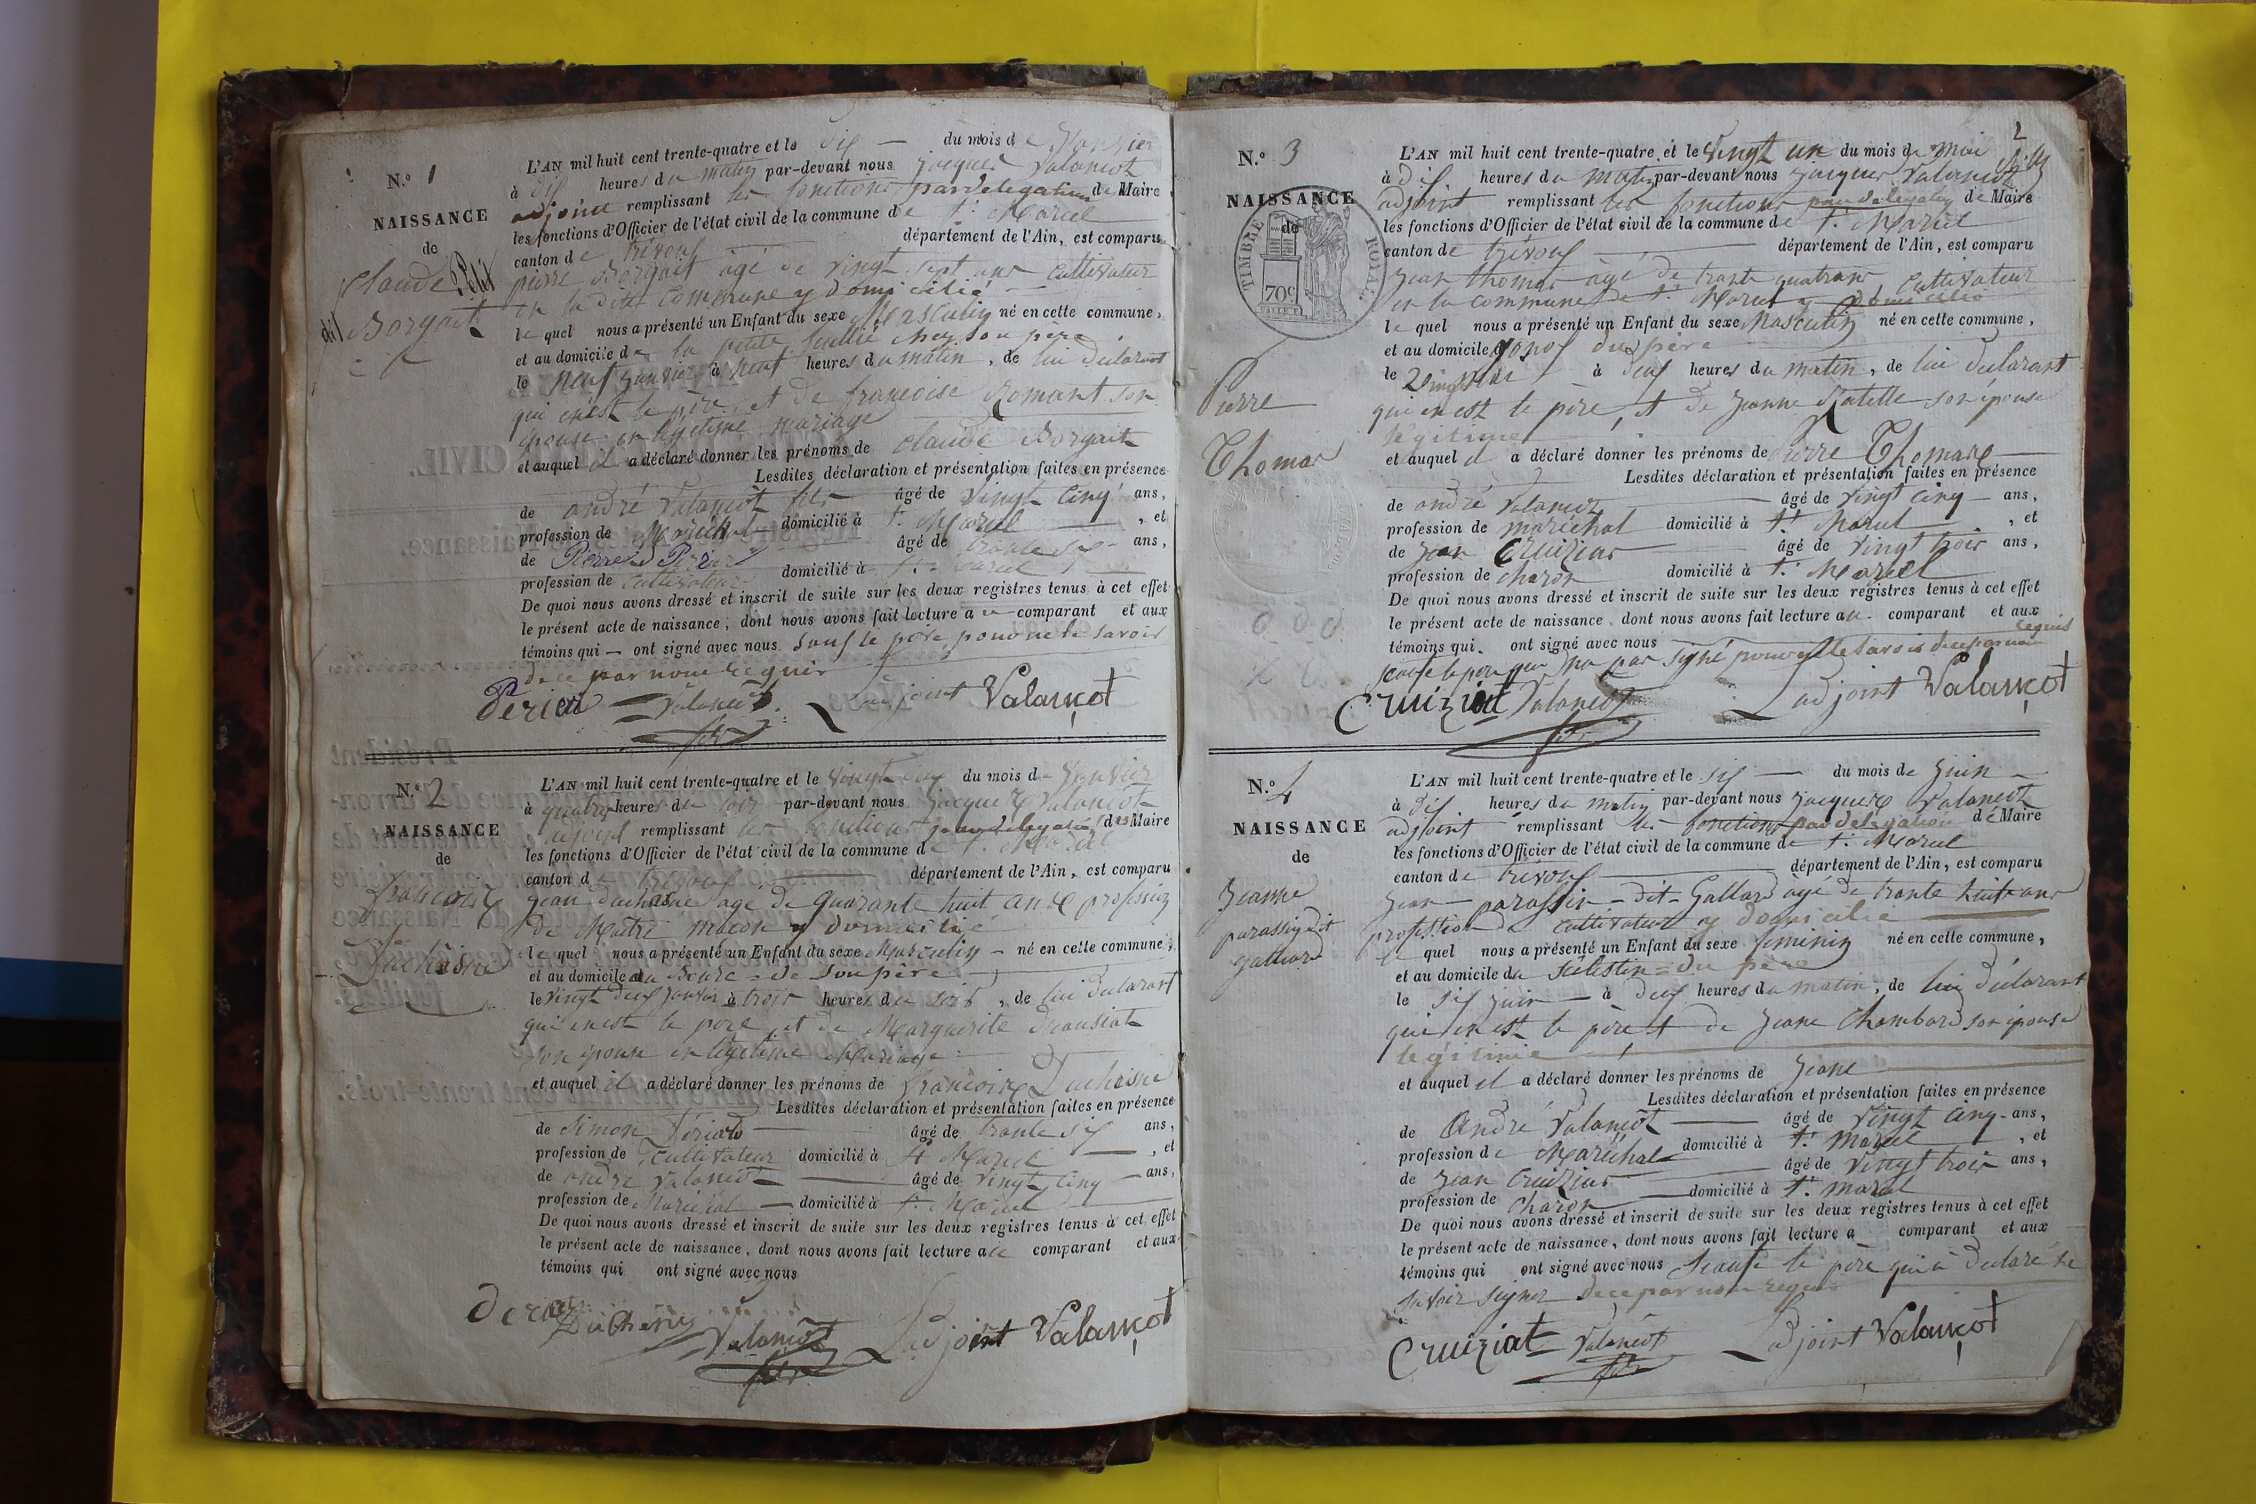 N.º 1
NAISSANCE
de
Claude Petit
dit Borgait
L'AN mil huit cent trente-quatre et le dix du mois de Janvier
à dix heures du matin par-devant nous Jacques Valançot
adjoint remplissant les fonctions par délégation de Maire
les fonctions d'Officier de l'état civil de la commune de St Marcel
canton de trévoux département de l'Ain, est comparu
pierre Borgait âgé de vingt sept ans Cultivateur
en la dite commune y domicilié
le quel nous a présenté un Enfant du sexe Masculin né en cette commune,
et au domicile de la petite chez son père
le neuf Janvier à neuf heures du matin, de lui déclarant
qui en est le père et de françoise Romant son
épouse en légitime mariage
et auquel il a déclaré donner les prénoms de Claude Borgait
Lesdites déclaration et présentation faites en présence
de andré Valançot fils âgé de vingt cinq ans,
profession de Maréchal domicilié à St Marcel, et
de Pierre âgé de trante six ans,
profession de Cultivateur domicilié à St Marcel
De quoi nous avons dressé et inscrit de suite sur les deux registres tenus à cet effet
le présent acte de naissance, dont nous avons fait lecture au comparant et aux
témoins qui ont signé avec nous sauf le père pour ne le savoir
de ce par nous requis
Valançot L'adjoint Valançot
N.º 2
NAISSANCE
de
françoix
Duchesne
L'AN mil huit cent trente-quatre et le vingt deux du mois de Janvier
à quatre heures du soir par-devant nous Jacques Valançot
adjoint remplissant les fonctions par délégation des Maire
les fonctions d'Officier de l'état civil de la commune de St Marcel
canton de trévoux département de l'Ain, est comparu
jean duchesne âgé de quarante huit ans profession
de Maitre maçon y domicilié
le quel nous a présenté un Enfant du sexe Masculin né en cette commune,
et au domicile de son père
le vingt deux janvier à trois heures du soir, de lui déclarant
qui en est le père et de Marguerite
son épouse en légitime Mariage
et auquel il a déclaré donner les prénoms de françoix Duchesne
Lesdites déclaration et présentation faites en présence
de Simon âgé de trante six ans,
profession de Cultivateur domicilié à St Marcel, et
de andré Valançot âgé de vingt cinq ans,
profession de Maréchal domicilié à St Marcel
De quoi nous avons dressé et inscrit de suite sur les deux registres tenus à cet effet
le présent acte de naissance, dont nous avons fait lecture au comparant et aux
témoins qui ont signé avec nous
Valançot L'adjoint Valançot
2
N.º 3
NAISSANCE
de
TIMBRE ROYAL
70c
Pierre
Thomas
L'AN mil huit cent trente-quatre et le vingt un du mois de mai
à dix heures du matin par-devant nous Jacques Valançot
adjoint remplissant les fonctions par délégation de Maire
les fonctions d'Officier de l'état civil de la commune de St Marcel
canton de trévoux département de l'Ain, est comparu
Jean thomas âgé de trante quatre ans Cultivateur
en la commune de St Marcel y domicilié
le quel nous a présenté un Enfant du sexe Masculin né en cette commune,
et au domicile du père
le vingt à deux heures du matin, de lui déclarant
qui en est le père, et de Jeanne son épouse
légitime
et auquel il a déclaré donner les prénoms de Pierre Thomas
Lesdites déclaration et présentation faites en présence
de andré Valançot âgé de vingt cinq ans,
profession de maréchal domicilié à St Marcel, et
de jean Cruiziat âgé de vingt trois ans,
profession de charon domicilié à St Marcel
De quoi nous avons dressé et inscrit de suite sur les deux registres tenus à cet effet
le présent acte de naissance, dont nous avons fait lecture au comparant et aux
témoins qui ont signé avec nous
requis
Cruiziat Valançot L'adjoint Valançot
N.º 4
NAISSANCE
de
Jeanne
parassin dit
gallard
L'AN mil huit cent trente-quatre et le six du mois de Juin
à dix heures du matin par-devant nous Jacques Valançot
adjoint remplissant les fonctions par délégation de Maire
les fonctions d'Officier de l'état civil de la commune de St Marcel
canton de trévoux département de l'Ain, est comparu
Jean parassin dit Gallard âgé de trante huit ans
profession de cultivateur y domicilié
le quel nous a présenté un Enfant du sexe feminin né en cette commune,
et au domicile du père
le six juin à deux heures du matin, de lui déclarant
qui en est le père et de Jeane Chambard son épouse
légitime
et auquel il a déclaré donner les prénoms de Jeane
Lesdites déclaration et présentation faites en présence
de André Valançot âgé de vingt cinq ans,
profession de Maréchal domicilié à St Marcel, et
de Jean Cruiziat âgé de vingt trois ans,
profession de charon domicilié à St Marcel
De quoi nous avons dressé et inscrit de suite sur les deux registres tenus à cet effet
le présent acte de naissance, dont nous avons fait lecture a comparant et aux
témoins qui ont signé avec nous le père qui a déclaré ne
savoir signer de ce par nous requis
Cruiziat Valançot L'adjoint Valançot